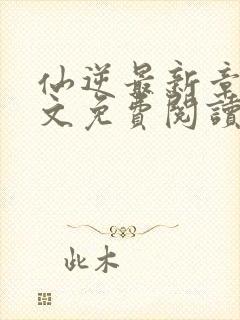 仙逆最新章
文免費閱讀
此木